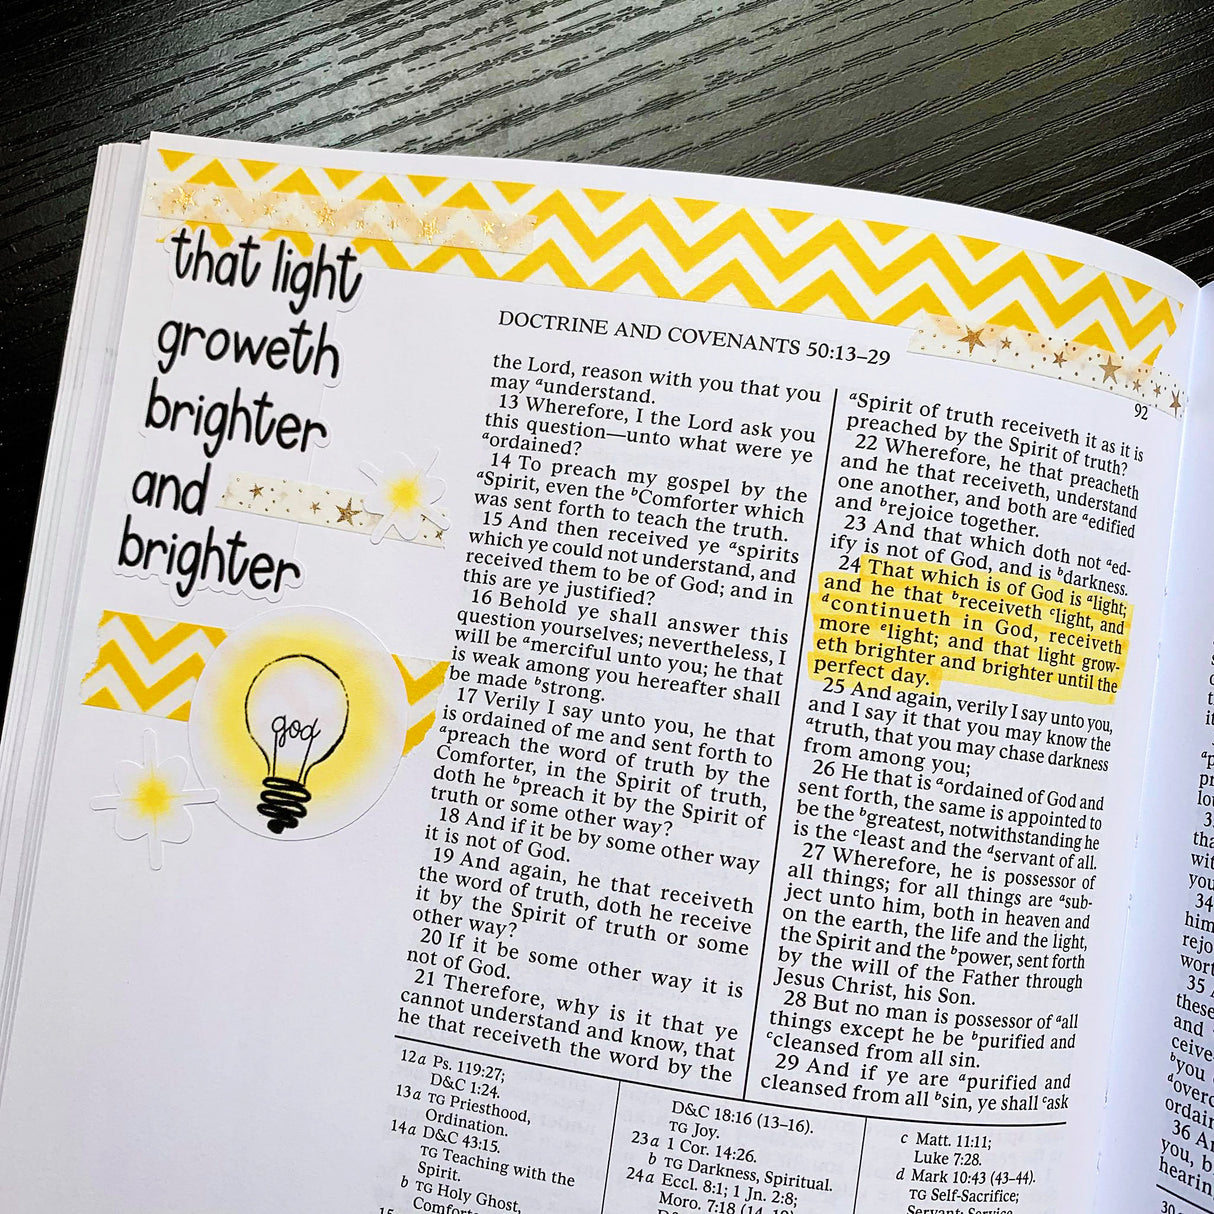 that light
groweth
brighter
and
brighter
god
DOCTRINE AND COVENANTS 50:13–29
92
the Lord, reason with you that you
may ᵃunderstand.
13 Wherefore, I the Lord ask you
this question—unto what were ye
ᵃordained?
14 To preach my gospel by the
ᵃSpirit, even the ᵇComforter which
was sent forth to teach the truth.
15 And then received ye ᵃspirits
which ye could not understand, and
received them to be of God; and in
this are ye justified?
16 Behold ye shall answer this
question yourselves; nevertheless, I
will be ᵃmerciful unto you; he that
is weak among you hereafter shall
be made ᵇstrong.
17 Verily I say unto you, he that
is ordained of me and sent forth to
ᵃpreach the word of truth by the
Comforter, in the Spirit of truth,
doth he ᵇpreach it by the Spirit of
truth or some other way?
18 And if it be by some other way
it is not of God.
19 And again, he that receiveth
the word of truth, doth he receive
it by the Spirit of truth or some
other way?
20 If it be some other way it is
not of God.
21 Therefore, why is it that ye
cannot understand and know, that
he that receiveth the word by the
ᵃSpirit of truth receiveth it as it is
preached by the Spirit of truth?
22 Wherefore, he that preacheth
and he that receiveth, understand
one another, and both are ᵃedified
and ᵇrejoice together.
23 And that which doth not ᵃed-
ify is not of God, and is ᵇdarkness.
24 That which is of God is ᵃlight;
and he that ᵇreceiveth ᶜlight, and
ᵈcontinueth in God, receiveth
more ᵉlight; and that light grow-
eth brighter and brighter until the
perfect day.
25 And again, verily I say unto you,
and I say it that you may know the
ᵃtruth, that you may chase darkness
from among you;
26 He that is ᵃordained of God and
sent forth, the same is appointed to
be the ᵇgreatest, notwithstanding he
is the ᶜleast and the ᵈservant of all.
27 Wherefore, he is possessor of
all things; for all things are ᵃsub-
ject unto him, both in heaven and
on the earth, the life and the light,
the Spirit and the ᵇpower, sent forth
by the will of the Father through
Jesus Christ, his Son.
28 But no man is possessor of ᵃall
things except he be ᵇpurified and
ᶜcleansed from all sin.
29 And if ye are ᵃpurified and
cleansed from all ᵇsin, ye shall ᶜask
12a Ps. 119:27;
D&C 1:24.
13a TG Priesthood,
Ordination.
14a D&C 43:15.
TG Teaching with the
Spirit.
b TG Holy Ghost,
D&C 18:16 (13–16).
TG Joy.
23a 1 Cor. 14:26.
b TG Darkness, Spiritual.
24a Eccl. 8:1; 1 Jn. 2:8;
Moro. 7:18
c Matt. 11:11;
Luke 7:28.
d Mark 10:43 (43–44).
TG Self-Sacrifice;
34
him
rejo
35
these
and
ᵇyou
36
you, b
hearin